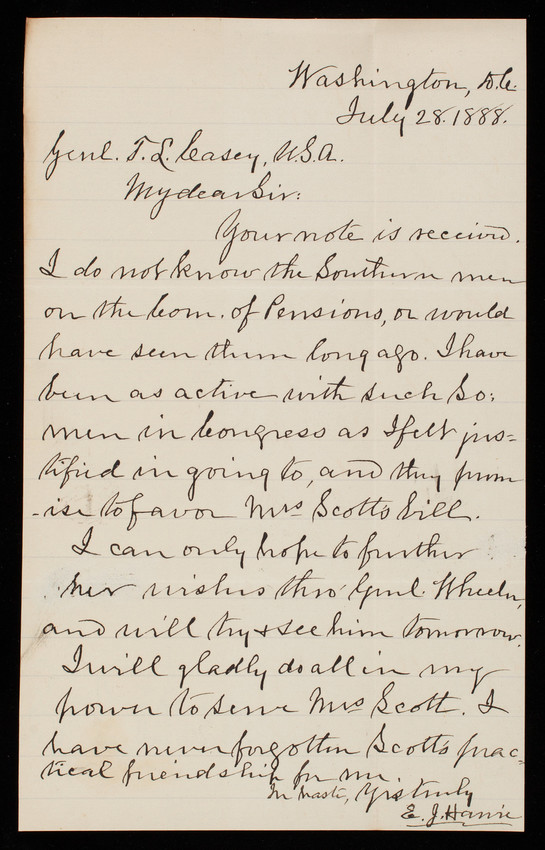 Washington, D.C.
July 28. 1888.
Genl. T. L. Casey, U.S.A.
My dear Sir:
Your note is received.
I do not know the Southern men
on the Com. of Pensions, or would
have seen them long ago. I have
been as active with such So:
men in Congress as I felt jus-
tified in going to, and they prom
-ise to favor Mrs Scott's bill.
I can only hope to further
her wishes thro' Genl. Wheeler,
and will try & see him tomorrow.
I will gladly do all in my
power to serve Mrs Scott. I
have never forgotten Scott's prac-
tical friendship for me.
In haste, Yrs truly
E. J.